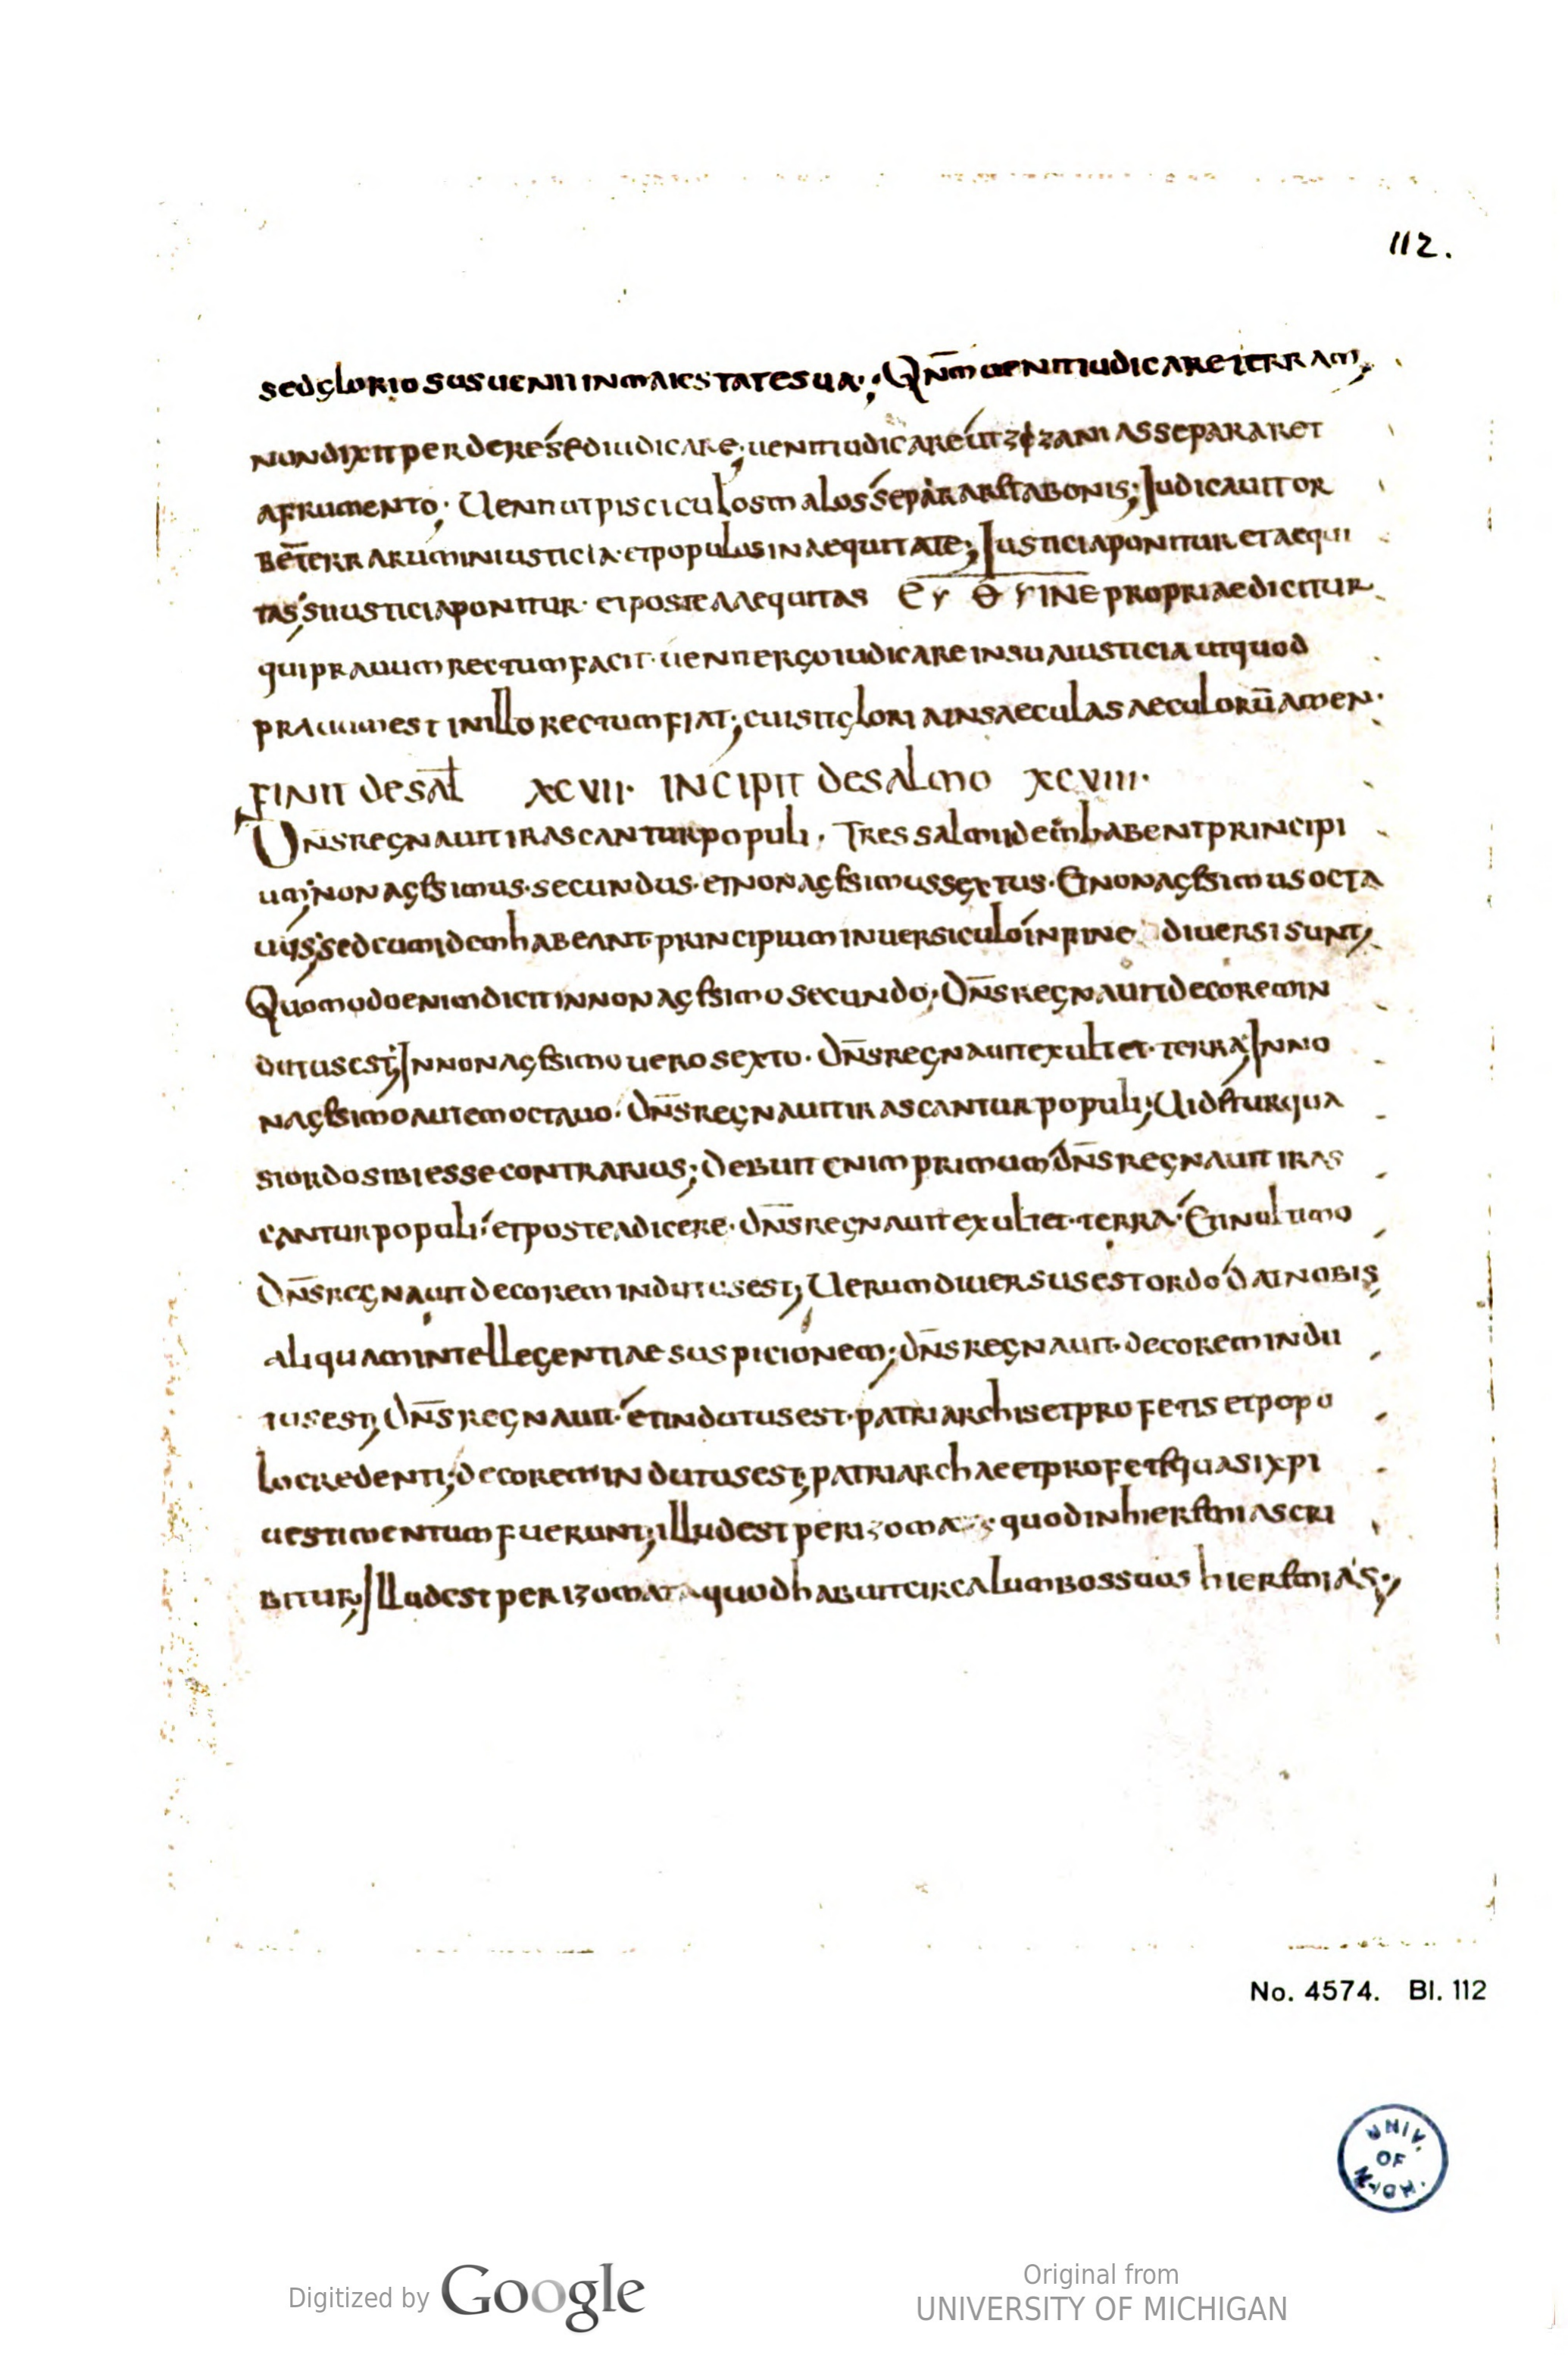 112.
sed gloriosus uenit in maiestate sua; Qnm̄ uenit iudicare terram;
non dixit perdere sed iudicare; uenit iudicare ut zizania separaret
a frumento; Uenit ut pisciculos malos separaret a bonis; Iudicauit or
bē terrarum in iusticia · et populos in aequitate; Iusticia ponitur et aequi
tas; si iusticia ponitur · et postea aequitas propriae dicitur
qui prauum rectum facit · uenit ergo iudicare in sua iusticia ut quod
prauum est in illo rectum fiat; cui sit gloria in saecula saeculorū amen ·
FINIT de sal̄ XCVII · INCIPIT de salmo XCVIII ·
Dn̄s regnauit irascantur populi · Tres salmi idem habent principi
um; nonagesimus · secundus · et nonagesimus sextus · Et nonagesimus octa
uus; sed cum idem habeant principium in uersiculo in fine diuersi sunt;
Quomodo enim dicit in nonagesimo secundo; Dn̄s regnauit decorem in
dutus est; In nonagesimo uero sexto · Dn̄s regnauit exultet · terra; In no
nagesimo autem octauo · Dn̄s regnauit irascantur populi; Uidetur qua
si ordo sibi esse contrarius; debuit enim primum dn̄s regnauit iras
cantur populi · et postea dicere · dn̄s regnauit exultet · terra · Et in ultimo
Dn̄s regnauit decorem indutus est; Uerum diuersus est ordo dat nobis
aliquam intellegentiae suspicionem; dn̄s regnauit · decorem indu
tus est; Dn̄s regnauit · et indutus est · patriarchis et profetis et popo
lo credenti; decorem indutus est; patriarchae et profete quasi xp̄i
uestimentum fuerunt; illud est perizoma · quod in hieremia scri
bitur; Illud est perizomata quod habuit circa lumbos suos hieremias;
No. 4574. Bl. 112
UNIV. OF MICH.
Digitized by Google
Original from
UNIVERSITY OF MICHIGAN